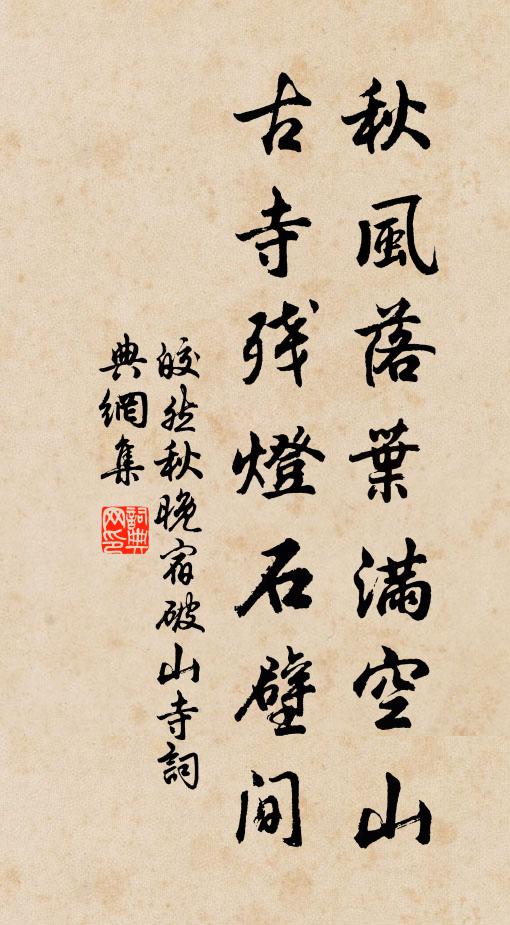 秋風落葉滿空山
古寺残燈石壁間
皎然秋晚宿破山寺詞
典網集
詞典網印